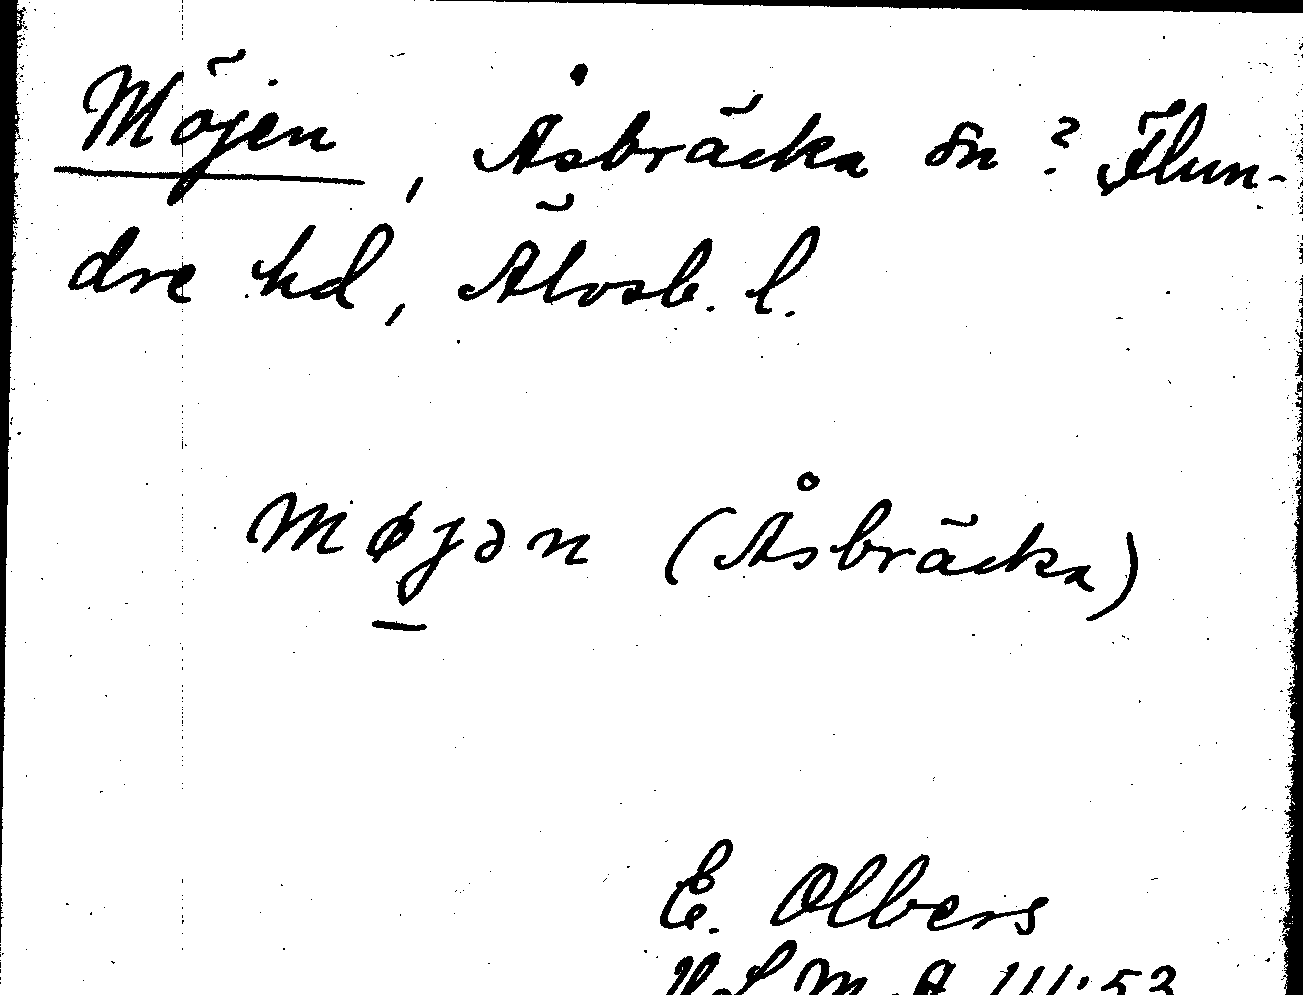 Möjen, Åsbräcka sn? Flun-
dre hd, Älvsb. l.
møjən (Åsbräcka)
E. Olbers